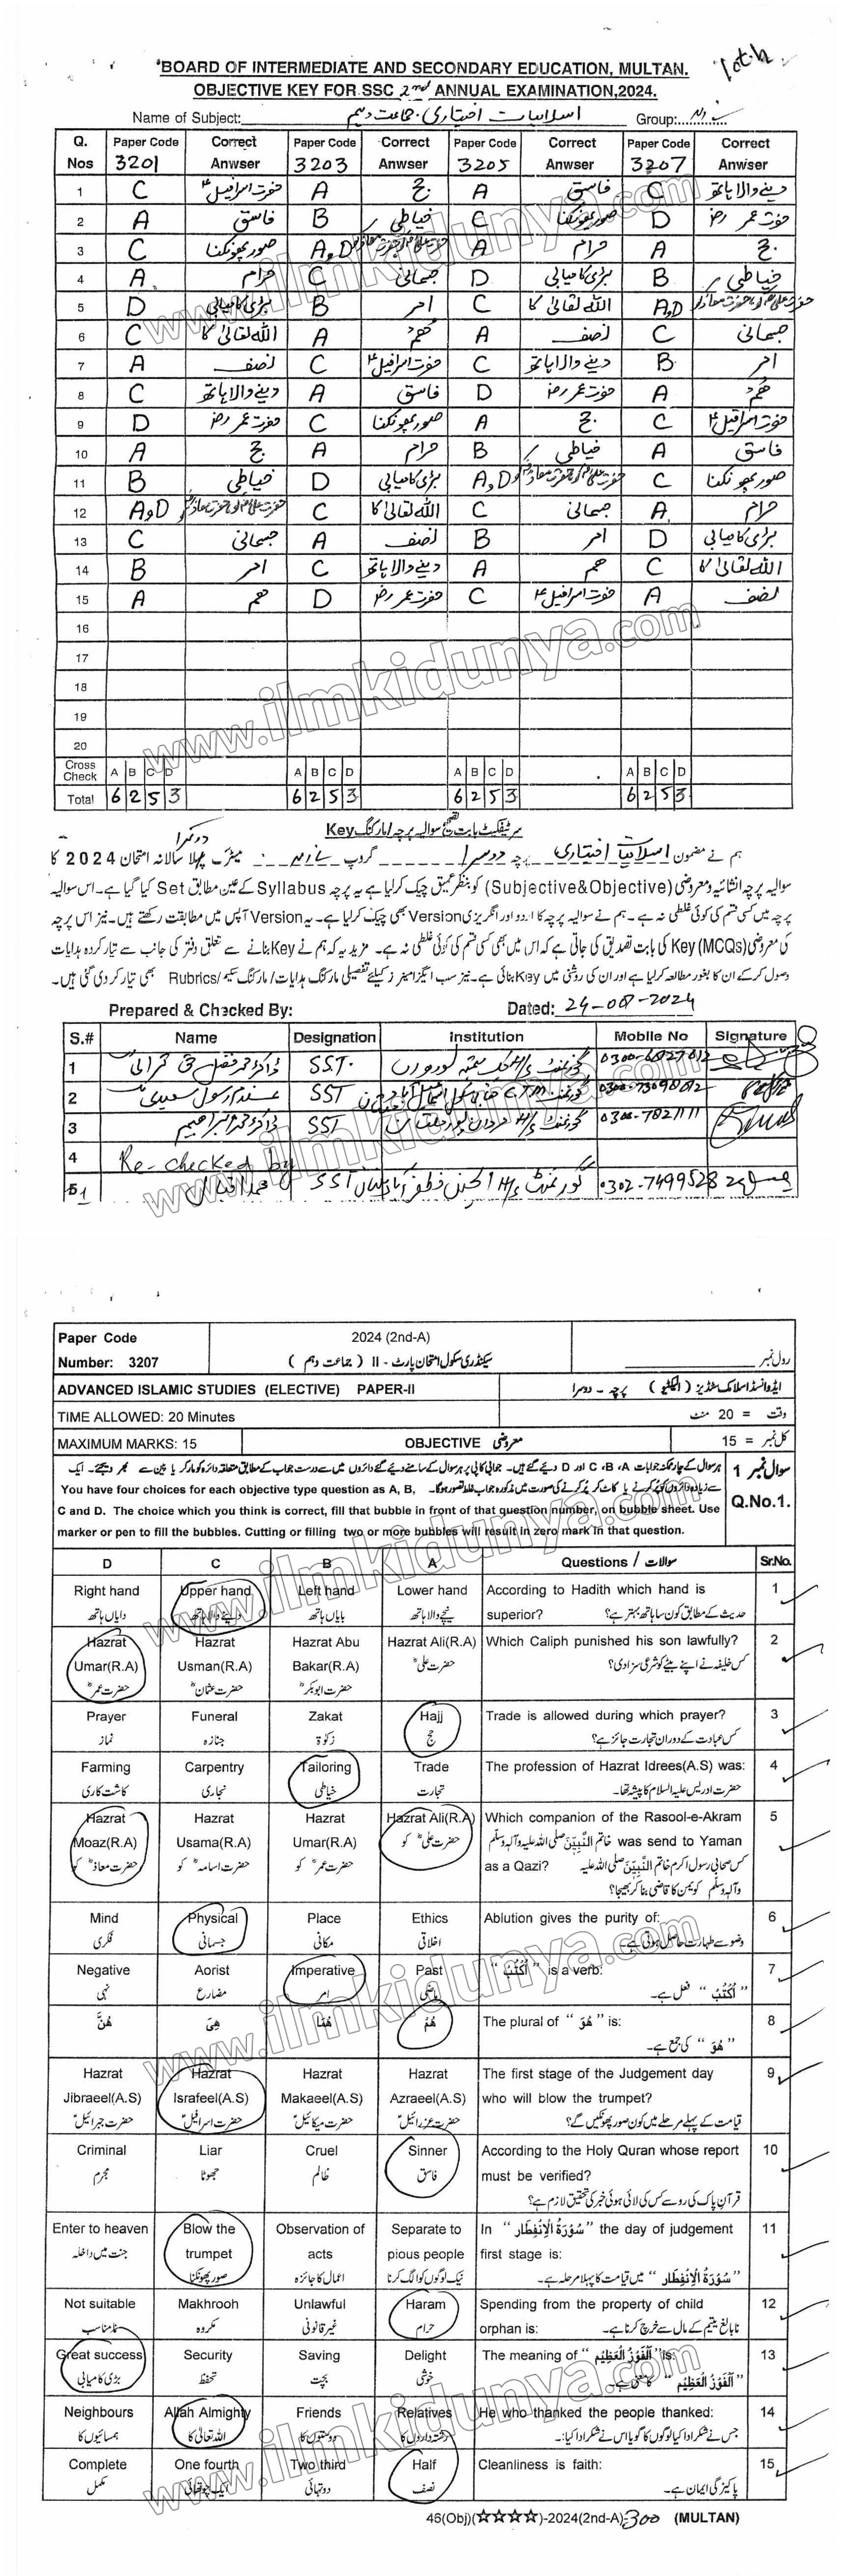 10th
BOARD OF INTERMEDIATE AND SECONDARY EDUCATION, MULTAN.
OBJECTIVE KEY FOR SSC 2nd ANNUAL EXAMINATION,2024.
Name of Subject: اسلامیات اختیاری، جماعت دہم Group:
Q. Nos Paper Code 3201 Correct Anwser Paper Code 3203 Correct Anwser Paper Code 3205 Correct Anwser Paper Code 3207 Correct Anwser
1 C حضرت اسرافیلؑ A حج A فاسق C دینے والا ہاتھ
2 A فاسق B خیاطی C صور پھونکنا D حضرت عمرؓ
3 C صور پھونکنا A,D حضرت علیؓ اور حضرت معاذؓ A حرام A حج
4 A حرام C جسمانی D بڑی کامیابی B خیاطی
5 D بڑی کامیابی B امر C اللہ تعالیٰ کا A,D حضرت علیؓ اور حضرت معاذؓ
6 C اللہ تعالیٰ کا A ھُم A نصف C جسمانی
7 A نصف C حضرت اسرافیلؑ C دینے والا ہاتھ B امر
8 C دینے والا ہاتھ A فاسق D حضرت عمرؓ A ھُم
9 D حضرت عمرؓ C صور پھونکنا A حج C حضرت اسرافیلؑ
10 A حج A حرام B خیاطی A فاسق
11 B خیاطی D بڑی کامیابی A,D حضرت علیؓ اور حضرت معاذؓ C صور پھونکنا
12 A,D حضرت علیؓ اور حضرت معاذؓ C اللہ تعالیٰ کا C جسمانی A حرام
13 C جسمانی A نصف B امر D بڑی کامیابی
14 B امر C دینے والا ہاتھ A ھم C اللہ تعالیٰ کا
15 A ھم D حضرت عمرؓ C حضرت اسرافیلؑ A نصف
16
17
18
19
20
Cross Check A B C D A B C D A B C D A B C D
Total 6 2 5 3 6 2 5 3 6 2 5 3 6 2 5 3
سرٹیفکیٹ بابت تصحیح سوالیہ پرچہ/مارکنگ Key
ہم نے مضمون اسلامیات اختیاری پرچہ دوسرا گروپ میٹرک پہلا دوسرا سالانہ امتحان 2024 کا
سوالیہ پرچہ انشائیہ و معروضی (Subjective&Objective) کو بنظر عمیق چیک کر لیا ہے یہ پرچہ Syllabus کے عین مطابق Set کیا گیا ہے۔ اس سوالیہ
پرچہ میں کسی قسم کی کوئی غلطی نہ ہے۔ ہم نے سوالیہ پرچہ کا اردو اور انگریزی Version بھی چیک کر لیا ہے۔ یہ Version آپس میں مطابقت رکھتے ہیں۔ نیز اس پرچہ
کی معروضی (MCQs) Key کی بابت تصدیق کی جاتی ہے کہ اس میں بھی کسی قسم کی کوئی غلطی نہ ہے۔ مزید یہ کہ ہم نے Key بنانے سے متعلق دفتر کی جانب سے تیار کردہ ہدایات
وصول کر کے ان کا بغور مطالعہ کر لیا ہے اور ان کی روشنی میں Key بنائی ہے۔ نیز سب ایگزامینرز کیلئے تفصیلی مارکنگ ہدایات/مارکنگ سکیم/Rubrics بھی تیار کر دی گئی ہیں۔
Prepared & Checked By: Dated: 24-08-2024
S.# Name Designation Institution Mobile No Signature
1 SST.
2 غلام رسول سعیدی SST
3 ڈاکٹر محمد ابراہیم SST 0300-7821111
4 Re-checked by
5 1 محمد اقبال SST 0302-7499528
Paper Code 2024 (2nd-A)
Number: 3207 سیکنڈری سکول امتحان پارٹ - II ( جماعت دہم ) رول نمبر
ADVANCED ISLAMIC STUDIES (ELECTIVE) PAPER-II ایڈوانسڈ اسلامک سٹڈیز ( الیکٹیو ) پرچہ - دوسرا
TIME ALLOWED: 20 Minutes وقت = 20 منٹ
MAXIMUM MARKS: 15 OBJECTIVE معروضی کل نمبر = 15
سوال نمبر 1 ہر سوال کے چار ممکنہ جوابات A، B، C اور D دیئے گئے ہیں۔ جوابی کاپی پر ہر سوال کے سامنے دیئے گئے دائروں میں سے درست جواب کے مطابق متعلقہ دائرہ کو مارکر یا پین سے بھر دیجئے۔ ایک
سے زیادہ دائروں کو پُر کرنے یا کاٹ کر پُر کرنے کی صورت میں مذکورہ جواب غلط تصور ہوگا۔ You have four choices for each objective type question as A, B,
Q.No.1. C and D. The choice which you think is correct, fill that bubble in front of that question number, on bubble sheet. Use
marker or pen to fill the bubbles. Cutting or filling two or more bubbles will result in zero mark in that question.
D C B A Questions / سوالات Sr.No.
Right hand Upper hand Left hand Lower hand According to Hadith which hand is 1
superior?
دایاں ہاتھ دینے والا ہاتھ بایاں ہاتھ نیچے والا ہاتھ حدیث کے مطابق کون سا ہاتھ بہتر ہے؟
Hazrat Hazrat Hazrat Abu Hazrat Ali(R.A) Which Caliph punished his son lawfully? 2
Umar(R.A) Usman(R.A) Bakar(R.A)
حضرت عمرؓ حضرت عثمانؓ حضرت ابوبکرؓ حضرت علیؓ کس خلیفہ نے اپنے بیٹے کو شرعی سزا دی؟
Prayer Funeral Zakat Hajj Trade is allowed during which prayer? 3
نماز جنازہ زکوٰۃ حج کس عبادت کے دوران تجارت جائز ہے؟
Farming Carpentry Tailoring Trade The profession of Hazrat Idrees(A.S) was: 4
کاشت کاری نجاری خیاطی تجارت حضرت ادریس علیہ السلام کا پیشہ تھا۔
Hazrat Hazrat Hazrat Hazrat Ali(R.A) Which companion of the Rasool-e-Akram 5
Moaz(R.A) Usama(R.A) Umar(R.A) خاتم النَّبِیِّنَ صلی اللہ علیہ وآلہ وسلم was send to Yaman
as a Qazi?
حضرت معاذؓ کو حضرت اسامہؓ کو حضرت عمرؓ کو حضرت علیؓ کو کس صحابی رسول اکرم خاتم النَّبِیِّنَ صلی اللہ علیہ
وآلہ وسلم کو یمن کا قاضی بنا کر بھیجا؟
Mind Physical Place Ethics Ablution gives the purity of: 6
فکری جسمانی مکانی اخلاقی وضو سے طہارت حاصل ہوتی ہے۔
Negative Aorist Imperative Past " اُکْتُبْ " is a verb: 7
نہی مضارع امر ماضی " اُکْتُبْ " فعل ہے۔
ھُنَّ ھِیَ ھُمَا ھُمْ The plural of " ھُوَ " is: 8
" ھُوَ " کی جمع ہے۔
Hazrat Hazrat Hazrat Hazrat The first stage of the Judgement day 9
Jibraeel(A.S) Israfeel(A.S) Makaeel(A.S) Azraeel(A.S) who will blow the trumpet?
حضرت جبرائیلؑ حضرت اسرافیلؑ حضرت میکائیلؑ حضرت عزرائیلؑ قیامت کے پہلے مرحلے میں کون صور پھونکیں گے؟
Criminal Liar Cruel Sinner According to the Holy Quran whose report 10
must be verified?
مجرم جھوٹا ظالم فاسق قرآن پاک کی رو سے کس کی لائی ہوئی خبر کی تحقیق لازم ہے؟
Enter to heaven Blow the Observation of Separate to In " سُوْرَۃُ الْاِنْفِطَار " the day of judgement 11
trumpet acts pious people first stage is:
جنت میں داخلہ صور پھونکنا اعمال کا جائزہ نیک لوگوں کو الگ کرنا " سُوْرَۃُ الْاِنْفِطَار " میں قیامت کا پہلا مرحلہ ہے۔
Not suitable Makhrooh Unlawful Haram Spending from the property of child 12
orphan is:
نامناسب مکروہ غیر قانونی حرام نابالغ یتیم کے مال سے خرچ کرنا ہے۔
Great success Security Saving Delight The meaning of " اَلْفَوْزُ الْعَظِیْم " is: 13
بڑی کامیابی تحفظ بچت خوشی " اَلْفَوْزُ الْعَظِیْم " کا معنی ہے۔
Neighbours Allah Almighty Friends Relatives He who thanked the people thanked: 14
ہمسائیوں کا اللہ تعالیٰ کا دوستوں کا رشتہ داروں کا جس نے شکر ادا کیا لوگوں کا گویا اس نے شکر ادا کیا:
Complete One fourth Two third Half Cleanliness is faith: 15
مکمل ایک چوتھائی دو تہائی نصف پاکیزگی ایمان ہے۔
46(Obj)(☆☆☆☆)-2024(2nd-A)-300 (MULTAN)
www.ilmkidunya.com
www.ilmkidunya.com
www.ilmkidunya.com
www.ilmkidunya.com
www.ilmkidunya.com
www.ilmkidunya.com